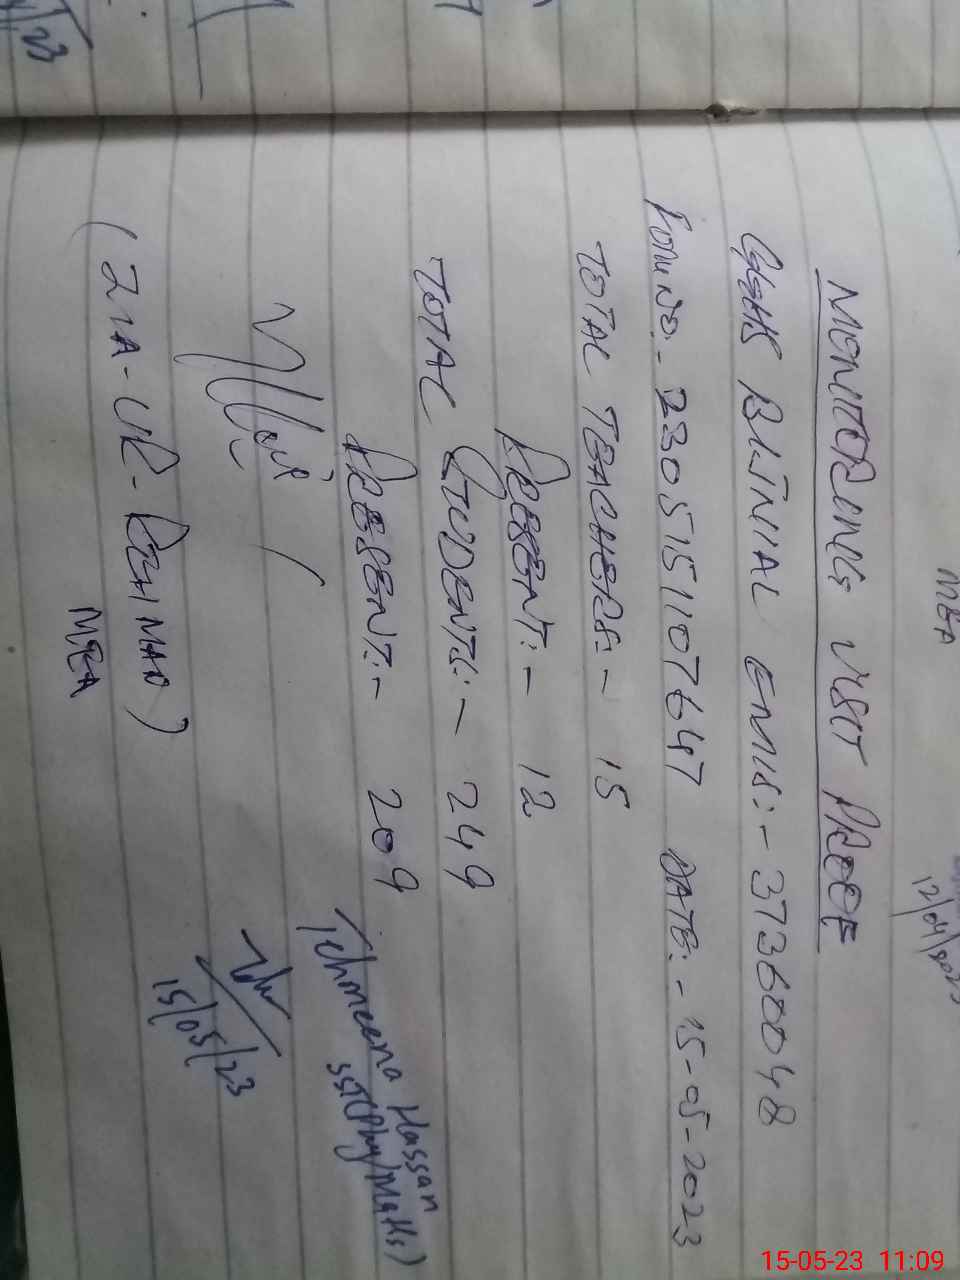 MONITORING VISIT PROOF
GGHS EMIS:- 37360048
FORM NO.- 2305151107647 DATE:- 15-05-2023
TOTAL TEACHERS:- 15
PRESENT:- 12
TOTAL STUDENTS:- 249
PRESENT:- 209
Tehmeena Hassan
SST(Phy/Maths)
15/05/23
(ZIA-UR-REHMAN)
MEA
MEA
12/04/2023
15-05-23 11:09